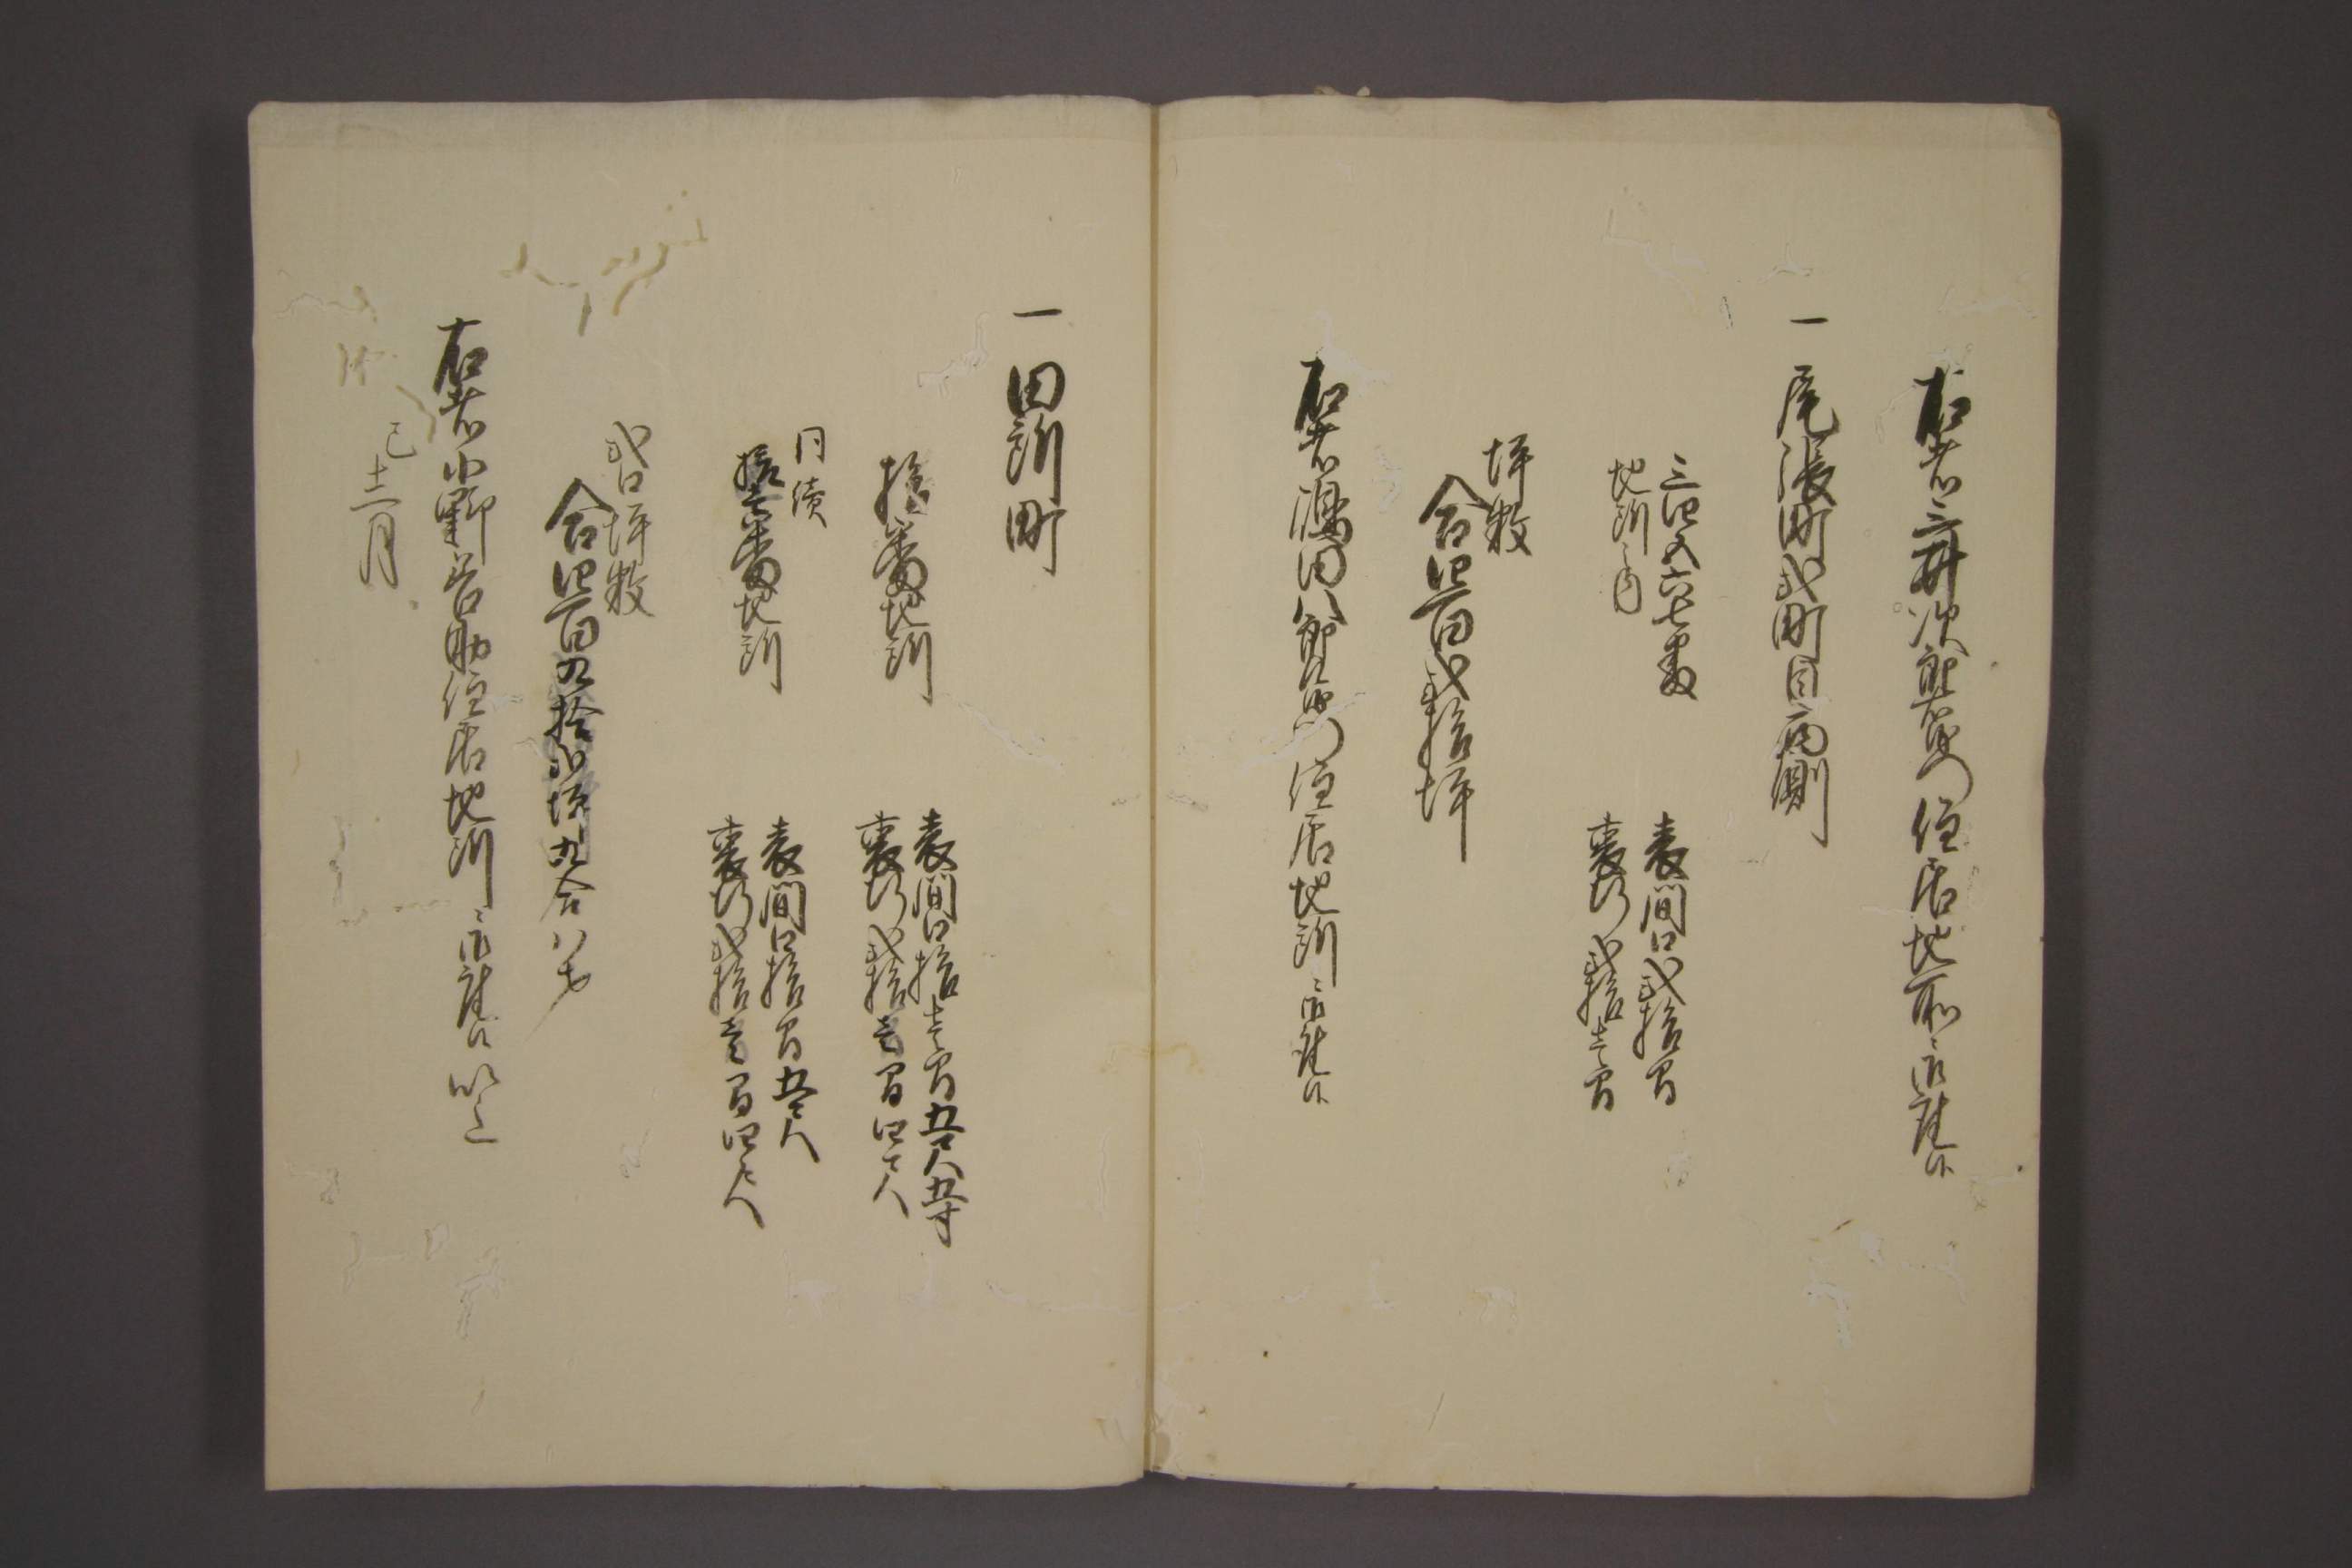 右者三井次郎右衛門住居地所ニ御座候
一尾張町弐町目両側
三四五六七番
地所之内
表間口弐拾間
裏行弐拾壱間
坪数
合四百弐拾坪
右者濱田八郎左衛門住居地所ニ御座候
一田所町
拾番地所
表間口拾壱間五尺五寸
裏行弐拾壱間四尺
同続
拾壱番地所
表間口拾間五尺
裏行弐拾壱間四尺
弐口坪数
合四百九拾弐坪九合八才
右者小野善助住居地所ニ御座候以上
巳十二月